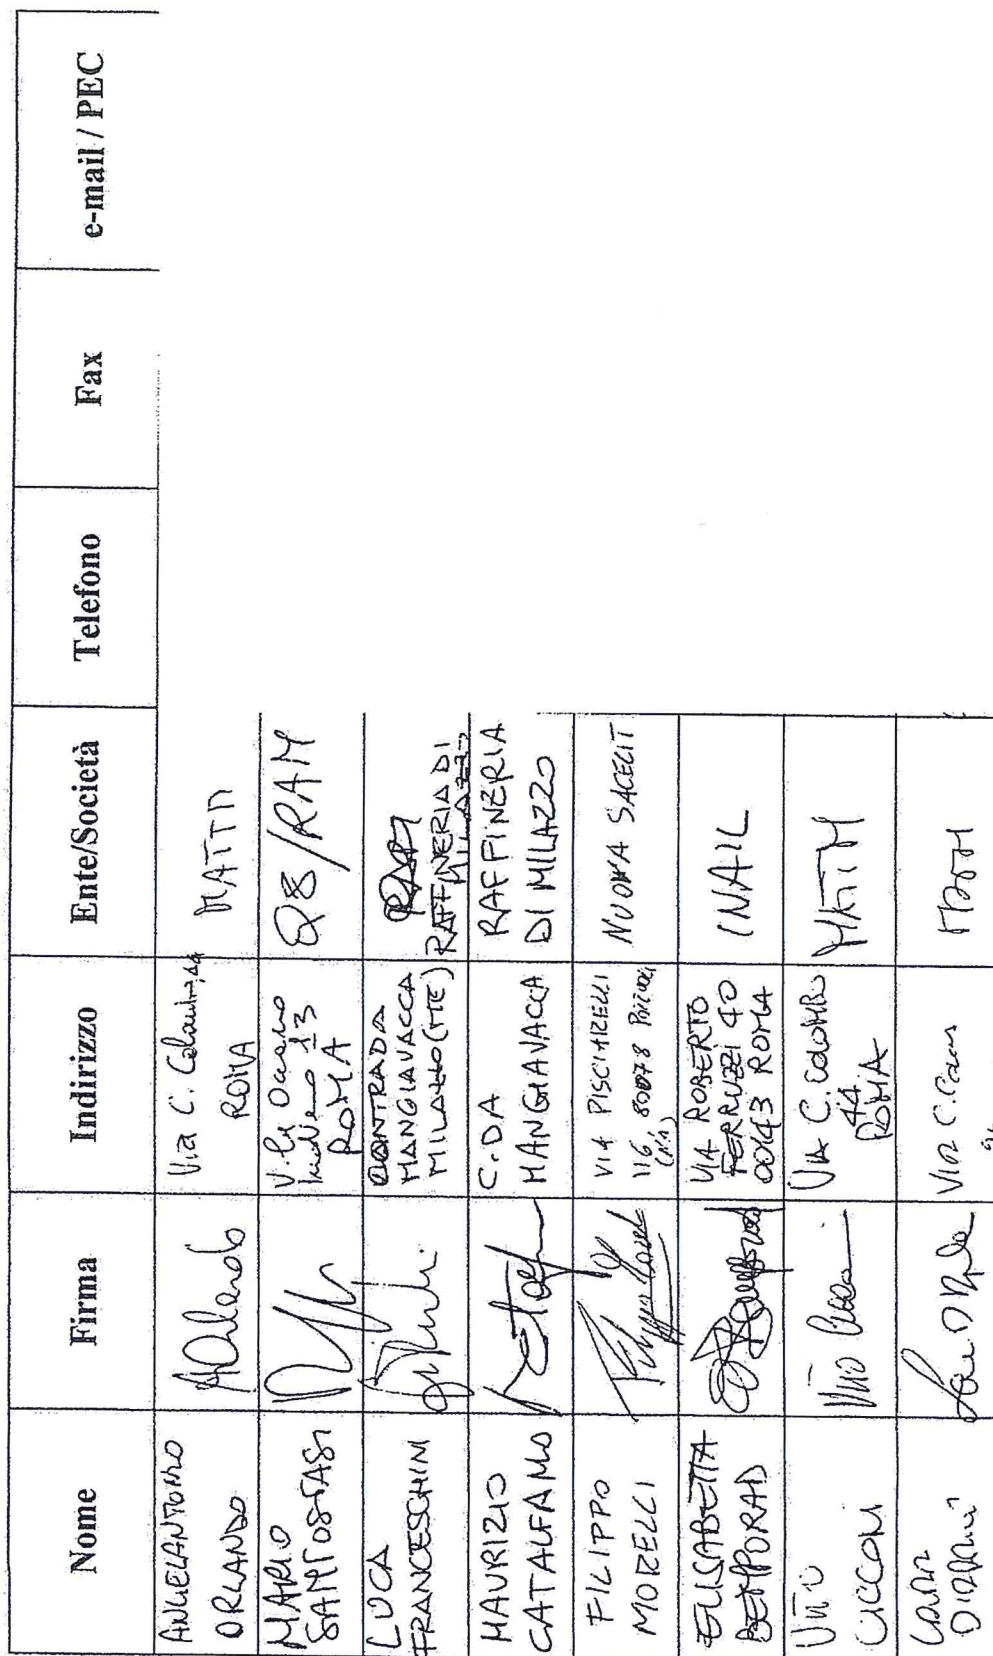 Nome Firma Indirizzo Ente/Società Telefono Fax e-mail / PEC
ANGELANTONIO
ORLANDO
AOrlando
Via C. Colombo, 44
ROMA
MATTM
MARIO
SANTOSTASI
V.le Oceano
Indiano 13
ROMA
Q8/RAM
LUCA
FRANCESCHINI
CONTRADA
MANGIAVACCA
MILAZZO (ME)
RAM
RAFFINERIA DI
MILAZZO
MAURIZIO
CATALFAMO
C.DA
MANGIAVACCA
RAFFINERIA
DI MILAZZO
FILIPPO
MORELLI
VIA PISCIARELLI
116, 80078
(NA)
NUOVA SACELIT
ELISABETTA
BEMPORAD
VIA ROBERTO
FERRUZZI 40
00143 ROMA
INAIL
VITO
CICCONI
VIA C. COLOMBO
44
ROMA
MATTM
VIA C.